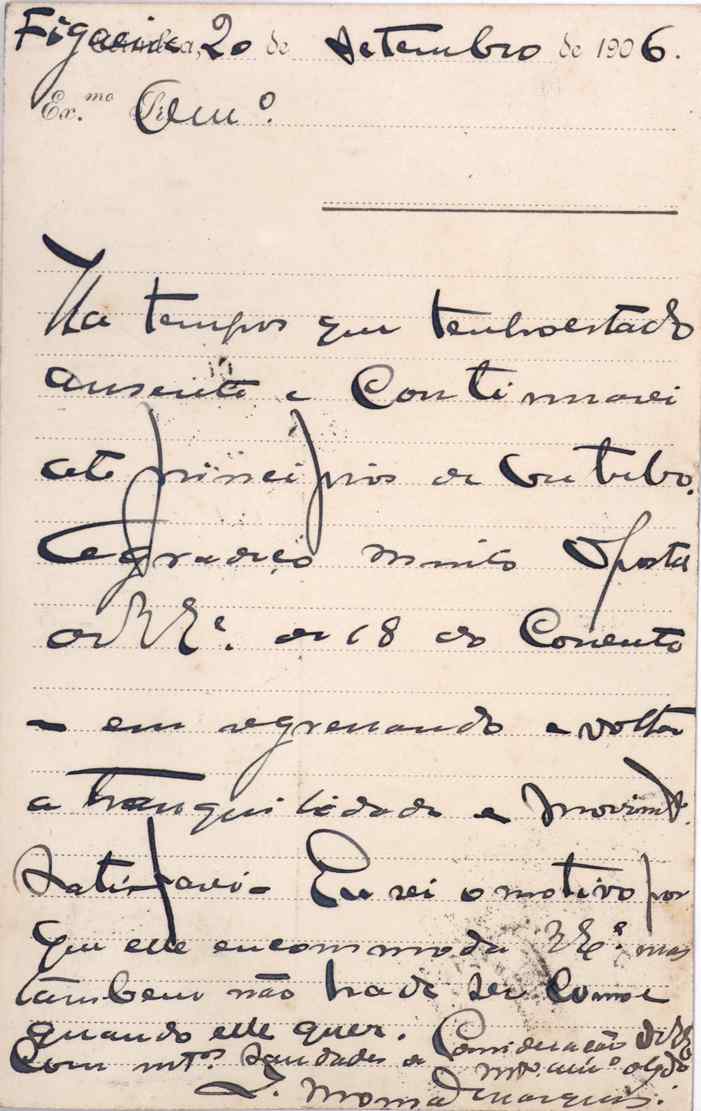 Figueira, 20 de Setembro de 1906.
Ex.mo Am.º
Ha tempos que tenho estado
ausente e continuarei
até principios de Outubro.
Agradeço muito o posta
de V. Ex.ª de 18 do corrente
- em regressando e volta
a tranquilidade e movimt.º
satisfarei - Eu sei o motivo por
que elle encommoda V. Ex.ª mas
tambem não hade ser como
quando elle quer. Consideração de V. Ex.ª
Com mt.ºs saudades e mt.º am.º obgdo